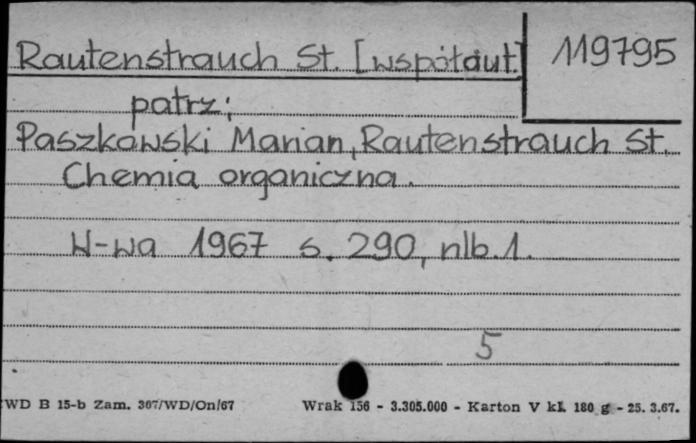 Rautenstrauch St. [współaut.] 119795
patrz:
Paszkowski Marian, Rautenstrauch St.
Chemia organiczna.
W-wa 1967 s. 290, nlb. 1.
5
WD B 15-b Zam. 307/WD/On/67 Wrak 156 - 3.305.000 - Karton V kl. 180 g - 25. 3.67.